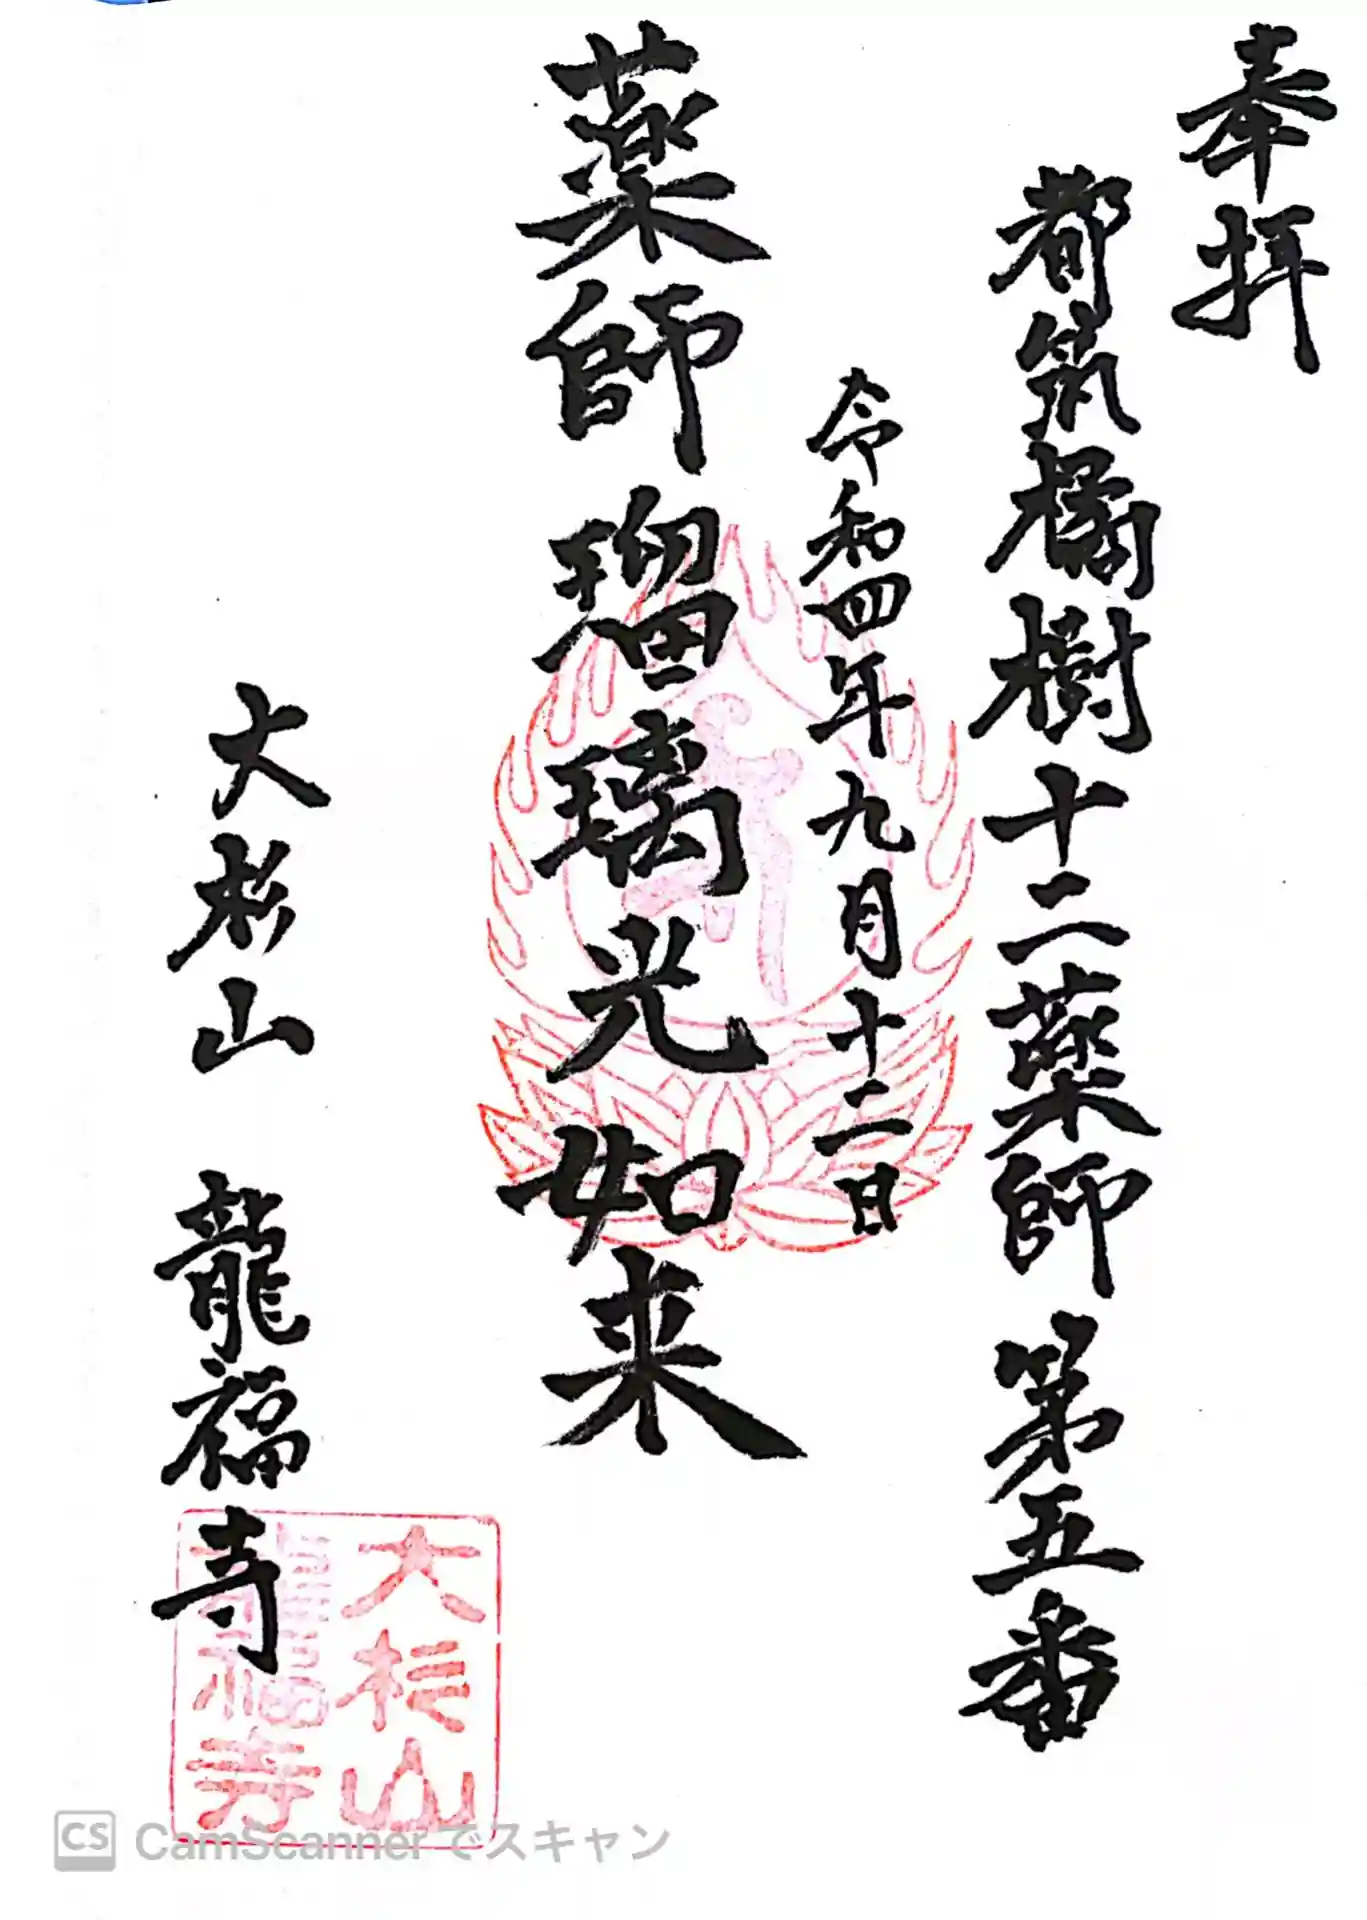 奉拝
都筑橘樹十二薬師 第五番
令和四年九月十二日
薬師瑠璃光如来
大杉山 龍福寺
大杉山
龍福寺
CS CamScannerでスキャン